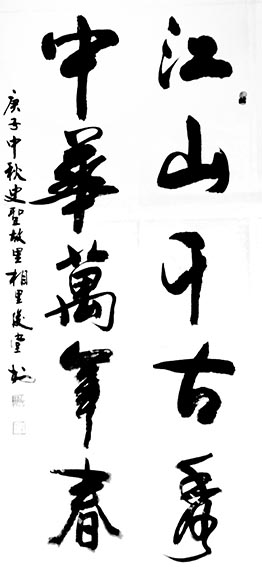 江山千古秀
中華萬年春
庚子中秋史聖故里相里俊堂